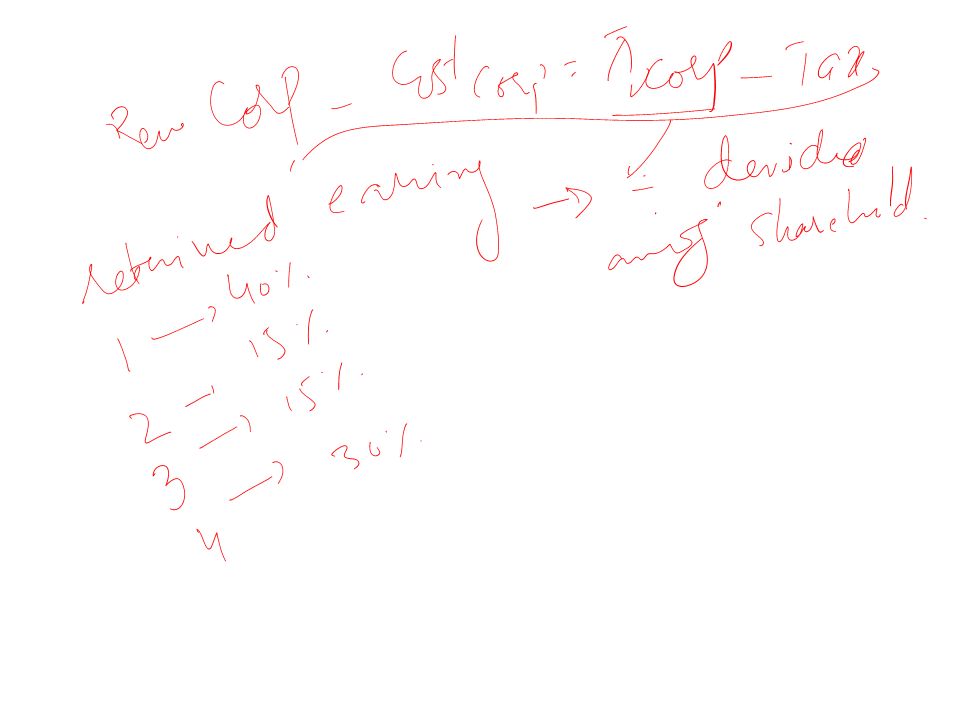 Rev Corp - Cost Corp = π corp - Tax
retained earning → = devided
among sharehold.
1 → 40%.
2 → 15%.
3 → 15%.
4 → 30%.